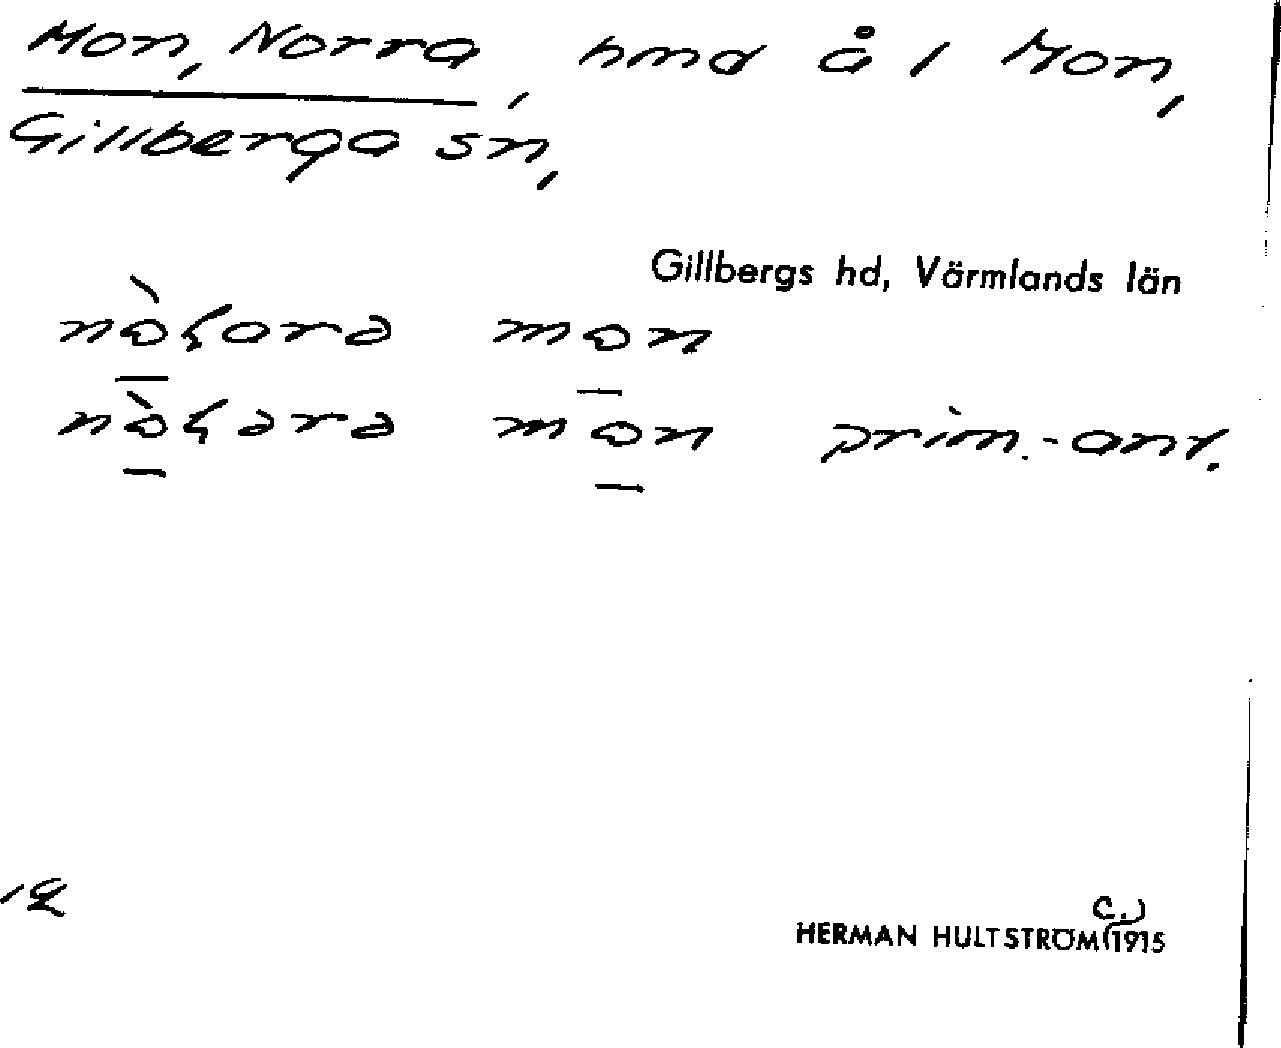 Mon, Norra, hmd å 1 Mon,
Gillberga sn,
Gillbergs hd, Värmlands län
prim.-ant.
12
c.)
HERMAN HULTSTRÖM (1915